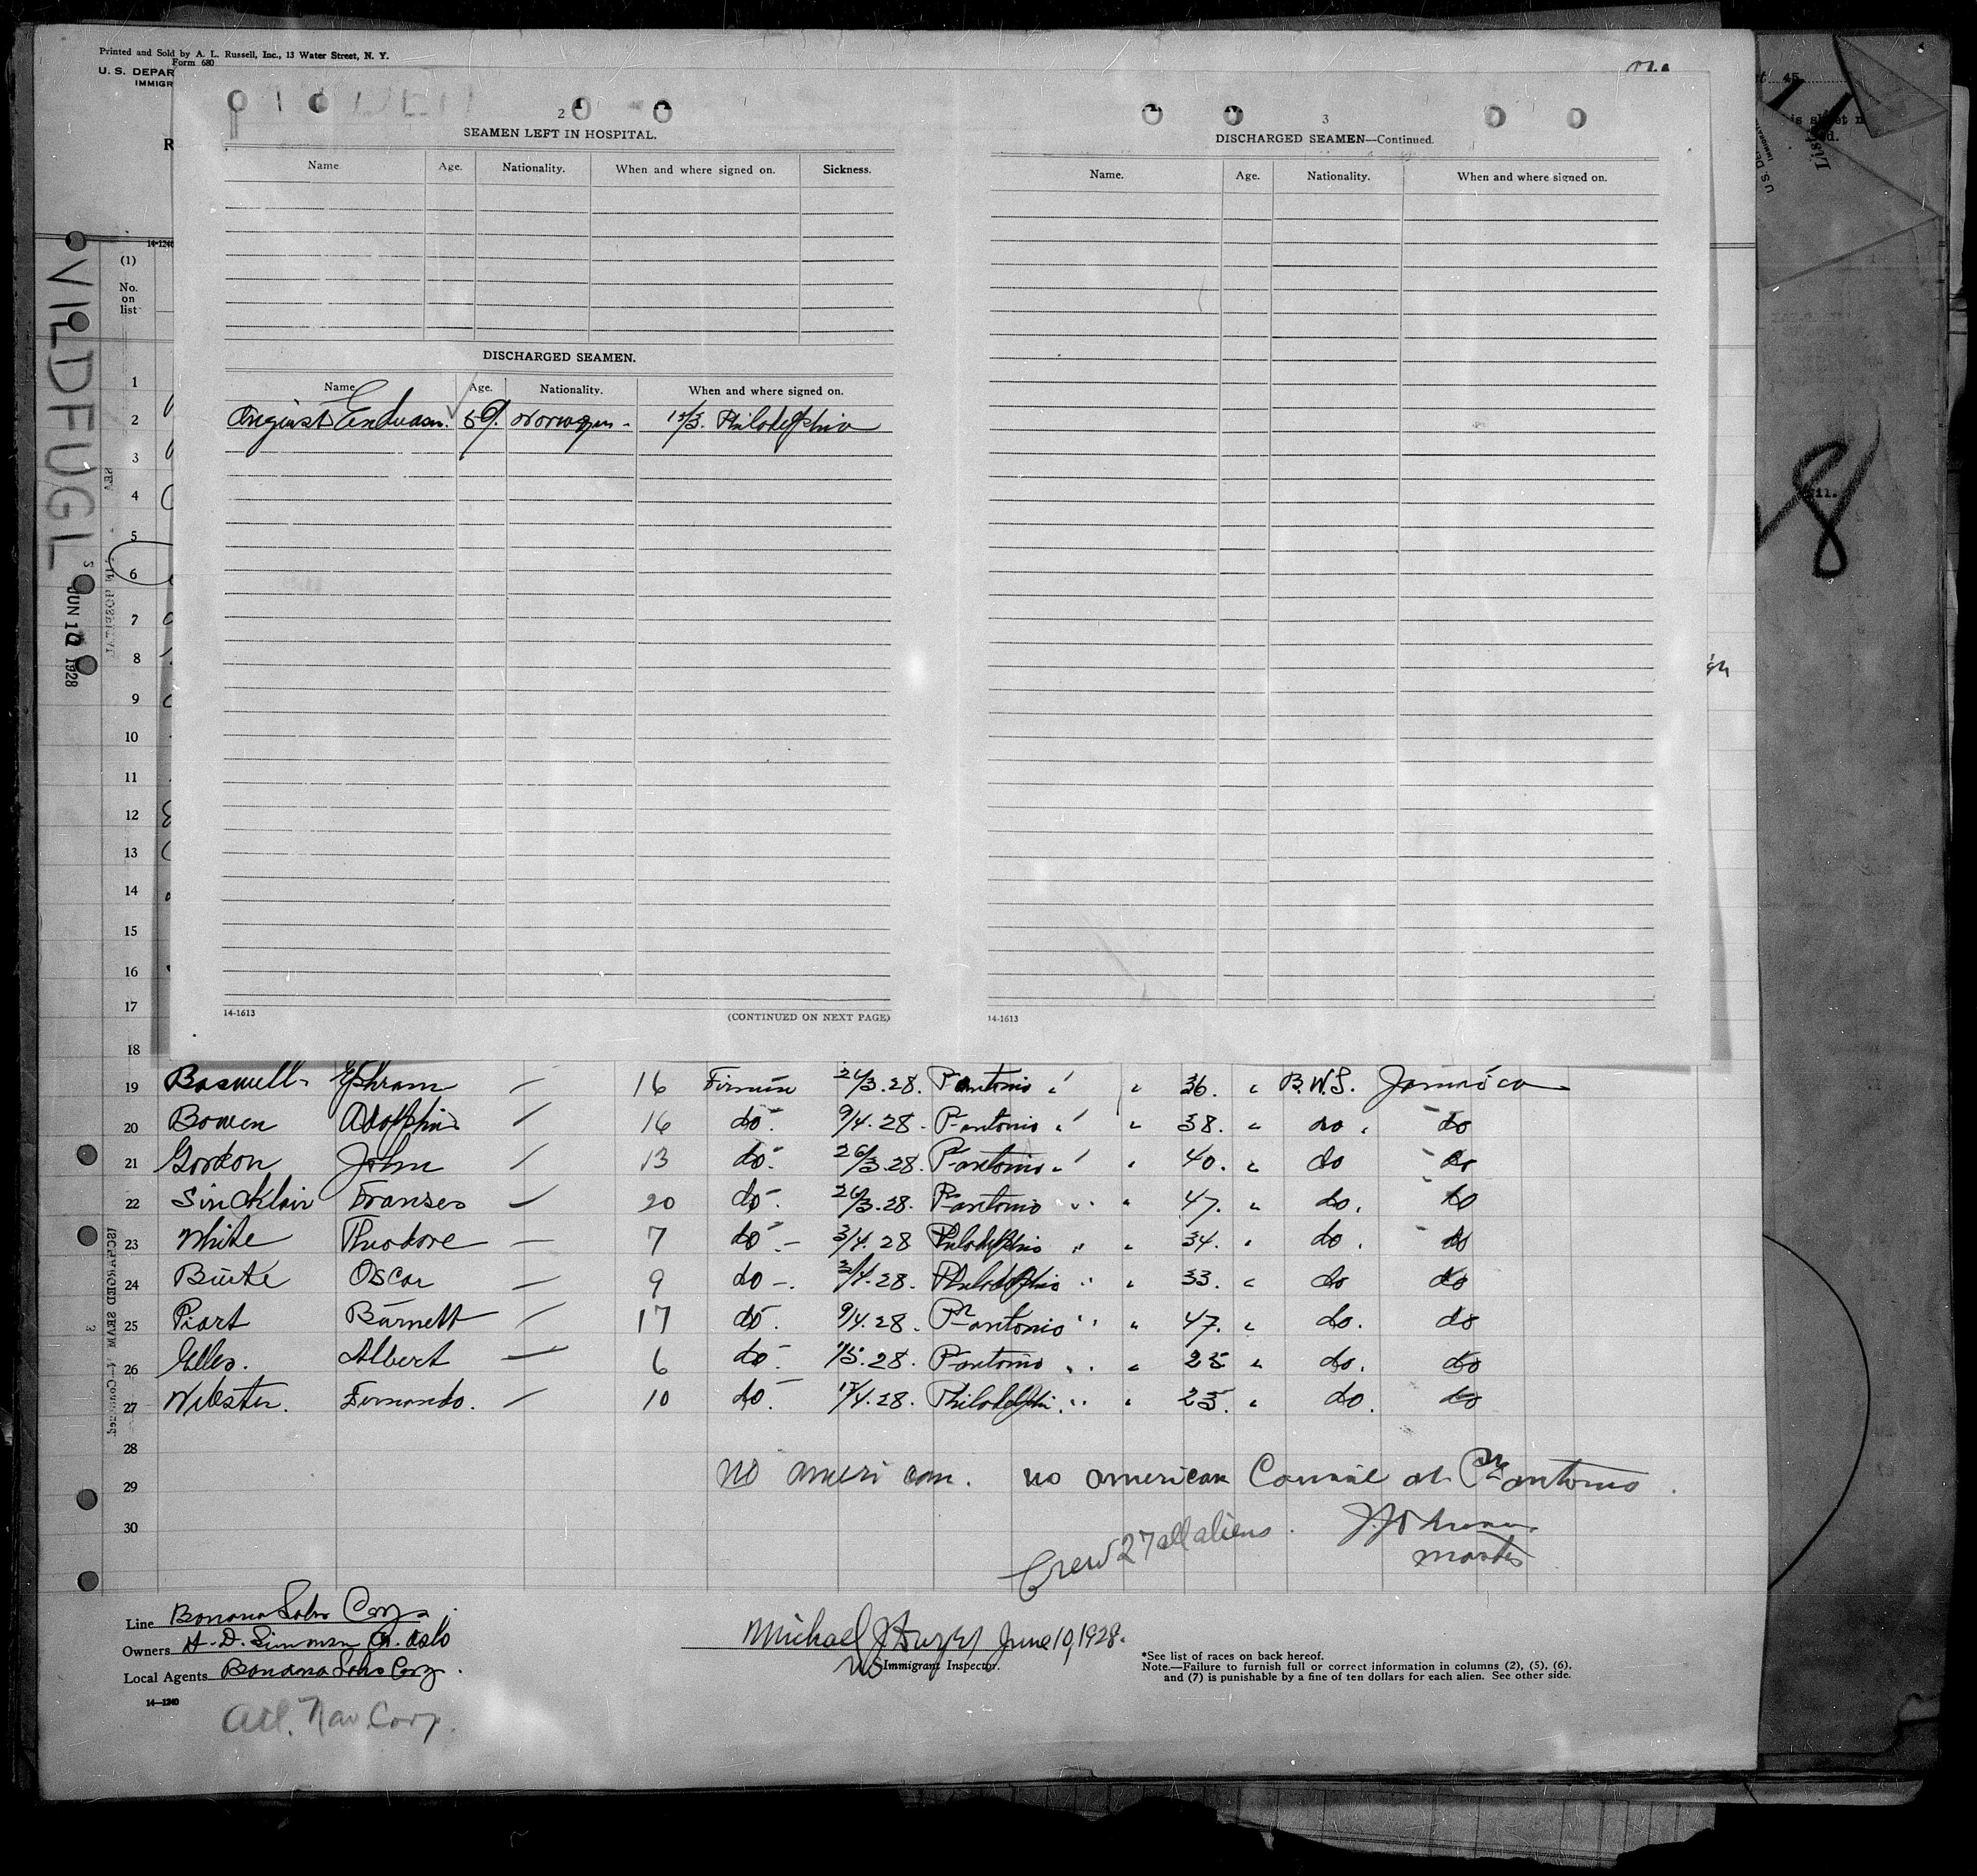 Printed and Sold by A. L. Russell, Inc., 13 Water Street, N. Y.
Form 680
U. S. DEPAR
IMMIGR
2
SEAMEN LEFT IN HOSPITAL.
Name Age. Nationality. When and where signed on. Sickness.
DISCHARGED SEAMEN.
Name Age. Nationality. When and where signed on.
August 59. 15/3. Philadelphia
14-1613 (CONTINUED ON NEXT PAGE)
3
DISCHARGED SEAMEN—Continued.
Name. Age. Nationality. When and where signed on.
14-1613
VILDFUGL
JUN 10 1928
(1)
No.
on
list
1
2
3
4
5
6
7
8
9
10
11
12
13
14
15
16
17
18
19 Ephram 16 26/3.28. P antonio " " 36. " B.W.I. Jamaica
20 Bowen 16 do. 9/4.28. P antonio " " 38. " do. do
21 Gordon John 13 do. 26/3.28. P antonio " " 40. " do do
22 Sincklair Franses 20 do. 26/3.28. P antonio " " 47. " do. do
23 White Theodore 7 do. 3/4.28 Philadelphia " " 34. " do. do
24 Oscar 9 do 3/4.28. Philadelphia " " 33. " do do
25 Burnett 17 do. 9/4.28. Pt antonio " " 47. " do. do
26 Elles. Albert 6 do. P antonio " " 25 " do. do
27 Webster. Fernando. 10 do. 17/4.28. Philadelphi " " 25. " do. do
28
29 no american. no american at Pt antonio.
30
Crew 27 all aliens.
Master
Line Banana Sales Corp.
Owners Oslo
Local Agents Banana Sales Corp.
14—1240
Atl. Nav. Corp.
Michael June 10, 1928.
Immigrant Inspector.
*See list of races on back hereof.
Note.—Failure to furnish full or correct information in columns (2), (5), (6),
and (7) is punishable by a fine of ten dollars for each alien. See other side.